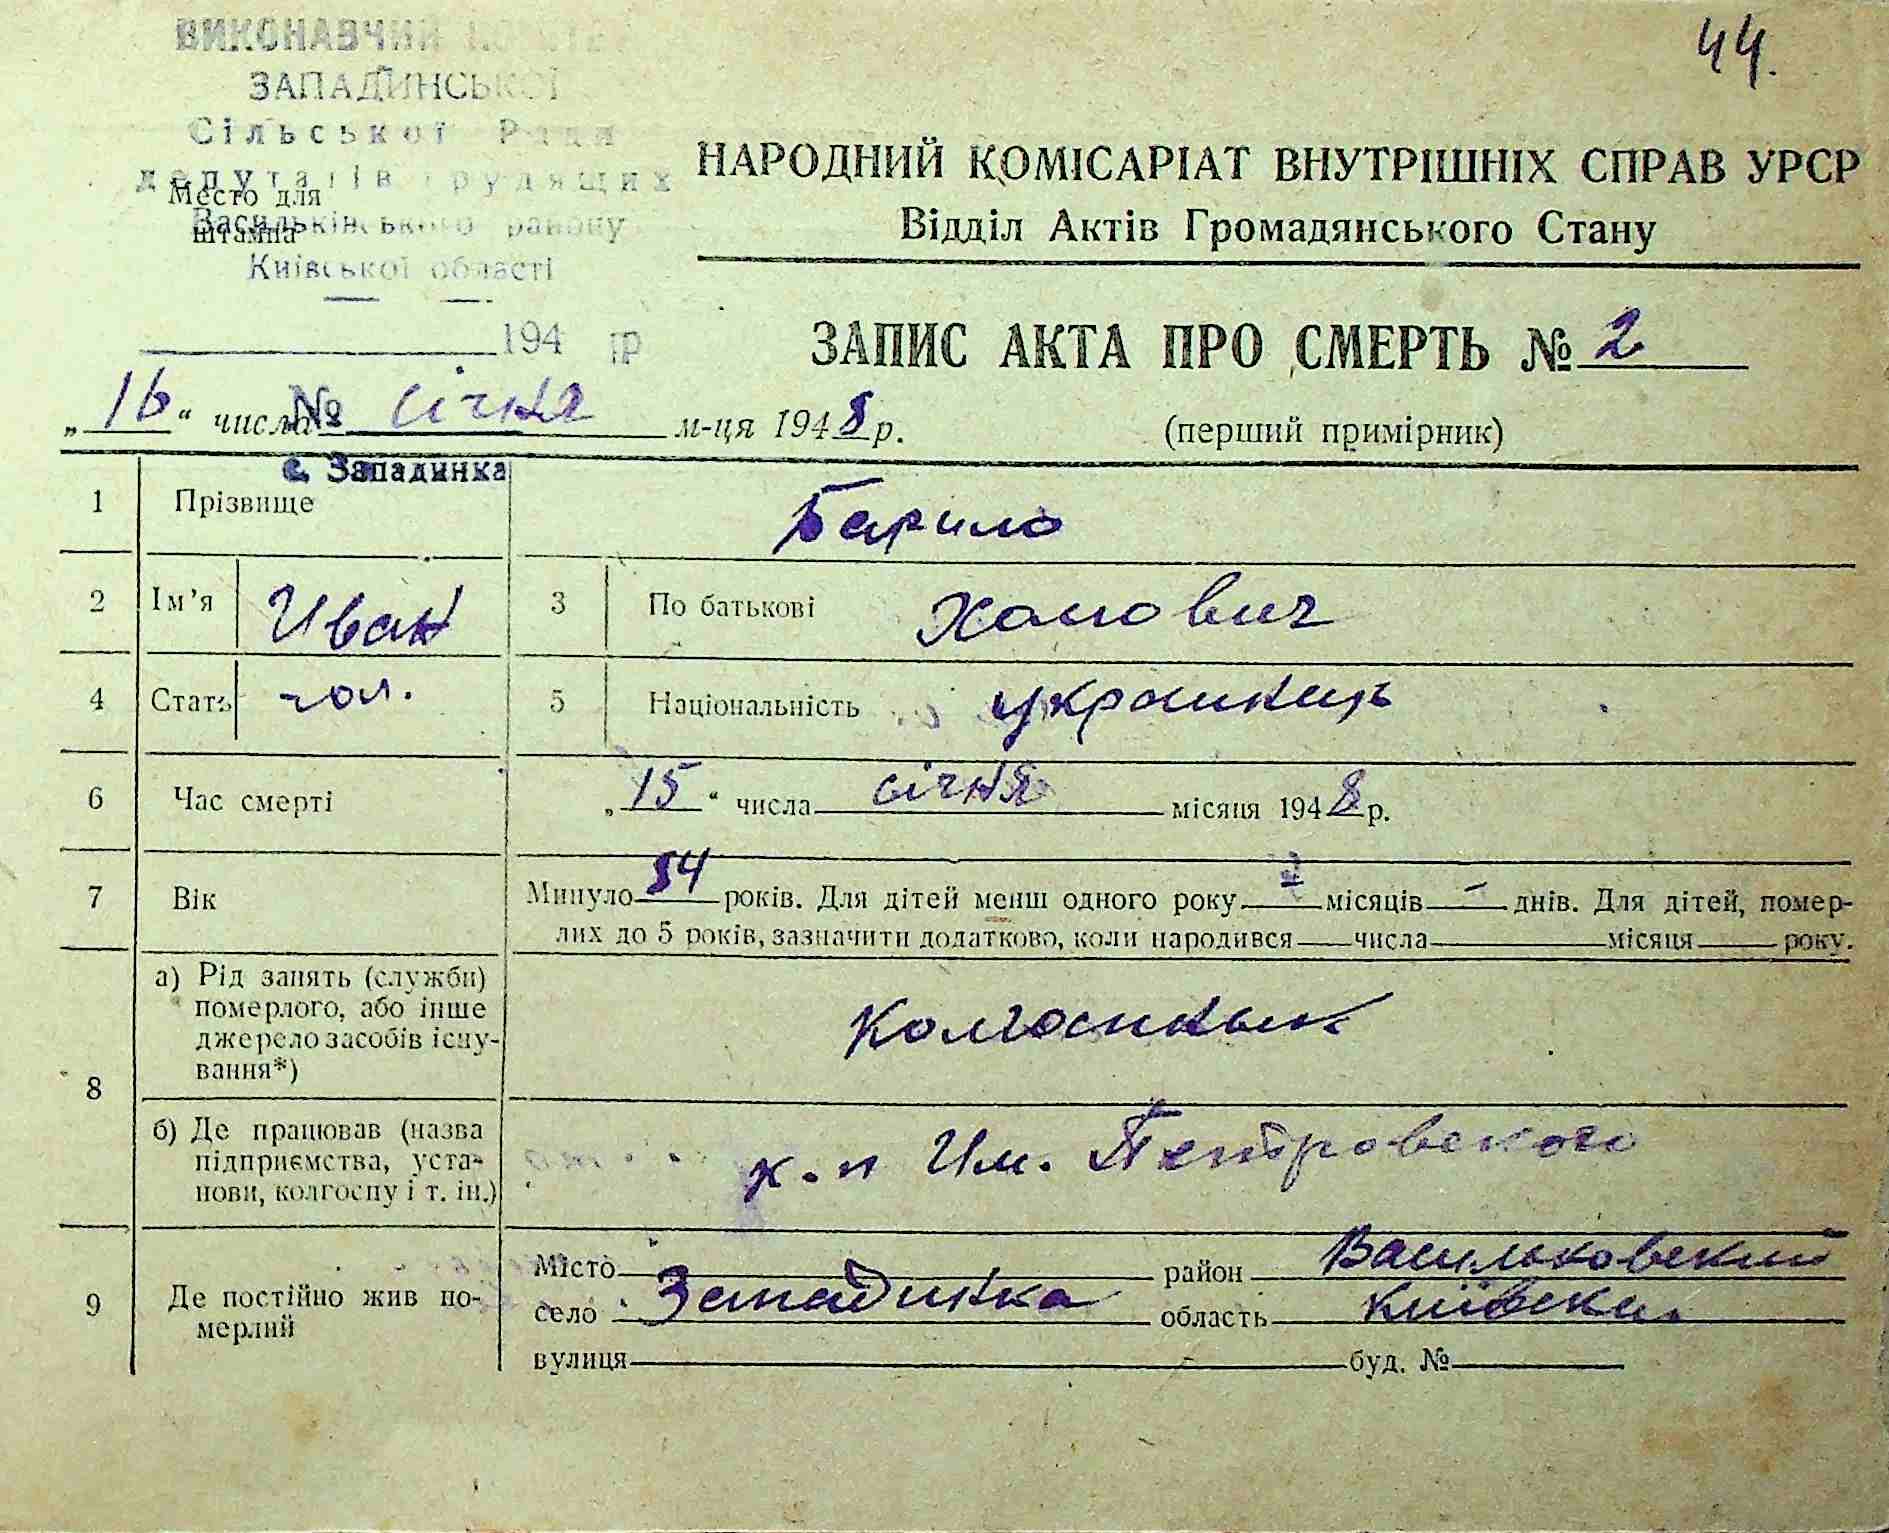 44.
ВИКОНАВЧИЙ
ЗАПАДИНСЬКОЇ
Сільської Ради
депутатів трудящих
Место для
штампа
Васильківського району
Київської області
194 р
№
с. Западинка
НАРОДНИЙ КОМІСАРІАТ ВНУТРІШНІХ СПРАВ УРСР
Відділ Актів Громадянського Стану
ЗАПИС АКТА ПРО СМЕРТЬ № 2
„16“ числа січня м-ця 1948 р.
(перший примірник)
1 Прізвище Барило
2 Ім'я Иван 3 По батькові Хомович
4 Стать чол. 5 Національність украинець
6 Час смерті „15“ числа січня місяця 1948 р.
7 Вік Минуло 54 років. Для дітей менш одного року - місяців - днів. Для дітей, помер-
лих до 5 років, зазначити додатково, коли народився числа місяця року.
8 а) Рід занять (служби)
померлого, або інше
джерело засобів існу-
вання*)
Колгоспнык
б) Де працював (назва
підприємства, уста-
нови, колгоспу і т. ін.)
к.п Им. Петровского
9 Де постійно жив по-
мерлий
Місто район Васильковский
село Западинка область Київська
вулиця буд. №